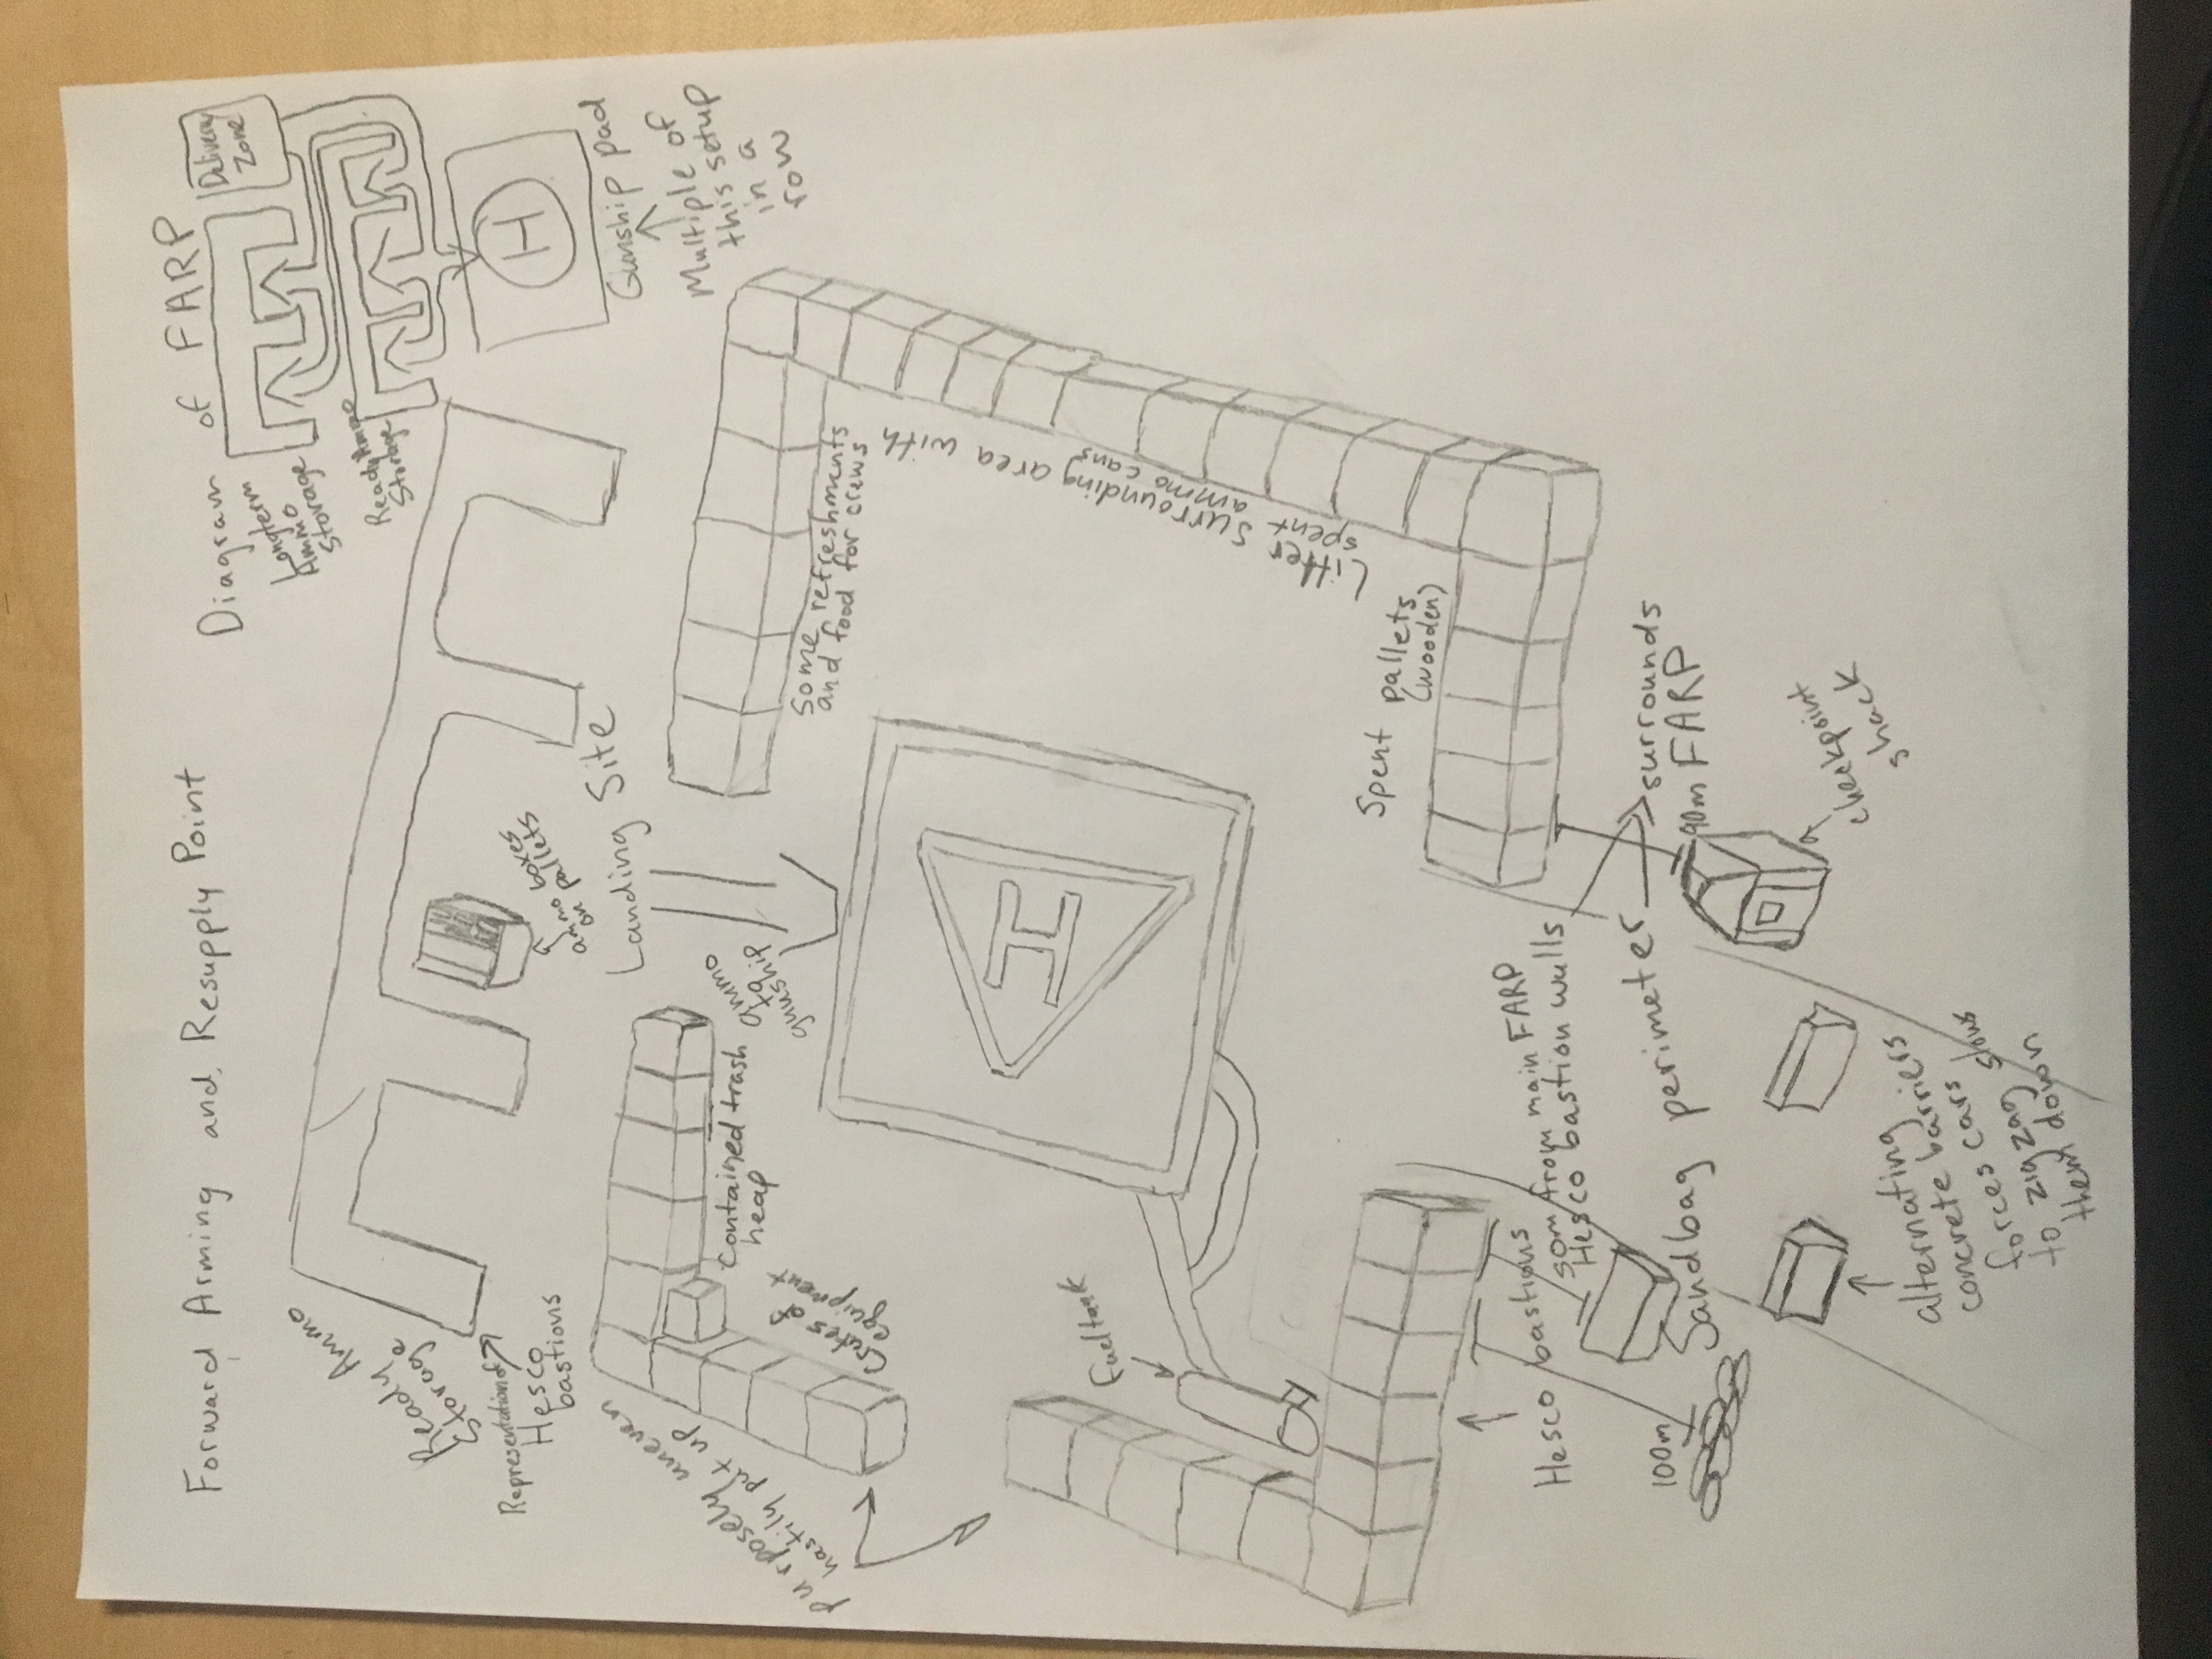 Forward Arming and Resupply Point
Diagram of FARP
Delivery
Zone
Longterm
Ammo
Storage
Ready Ammo
Storage
H
Gunship pad
Multiple of
this setup
in a
row
Ready Ammo
Storage
Representation of
Hesco
bastions
ammo boxes
on pallets
Landing Site
purposely uneven
hastily put up
contained trash
heap
Crates of
equipment
ammo
to
gunship
some refreshments
and food for crews
H
Litter surrounding area with
spent ammo cans
Fuel tank
Spent pallets
(wooden)
Hesco bastions
50m from main FARP
Hesco bastion walls
100m
Sandbag perimeter
surrounds
FARP
90m
checkpoint
shack
alternating
concrete barriers
forces cars
to zigzag slows
them down